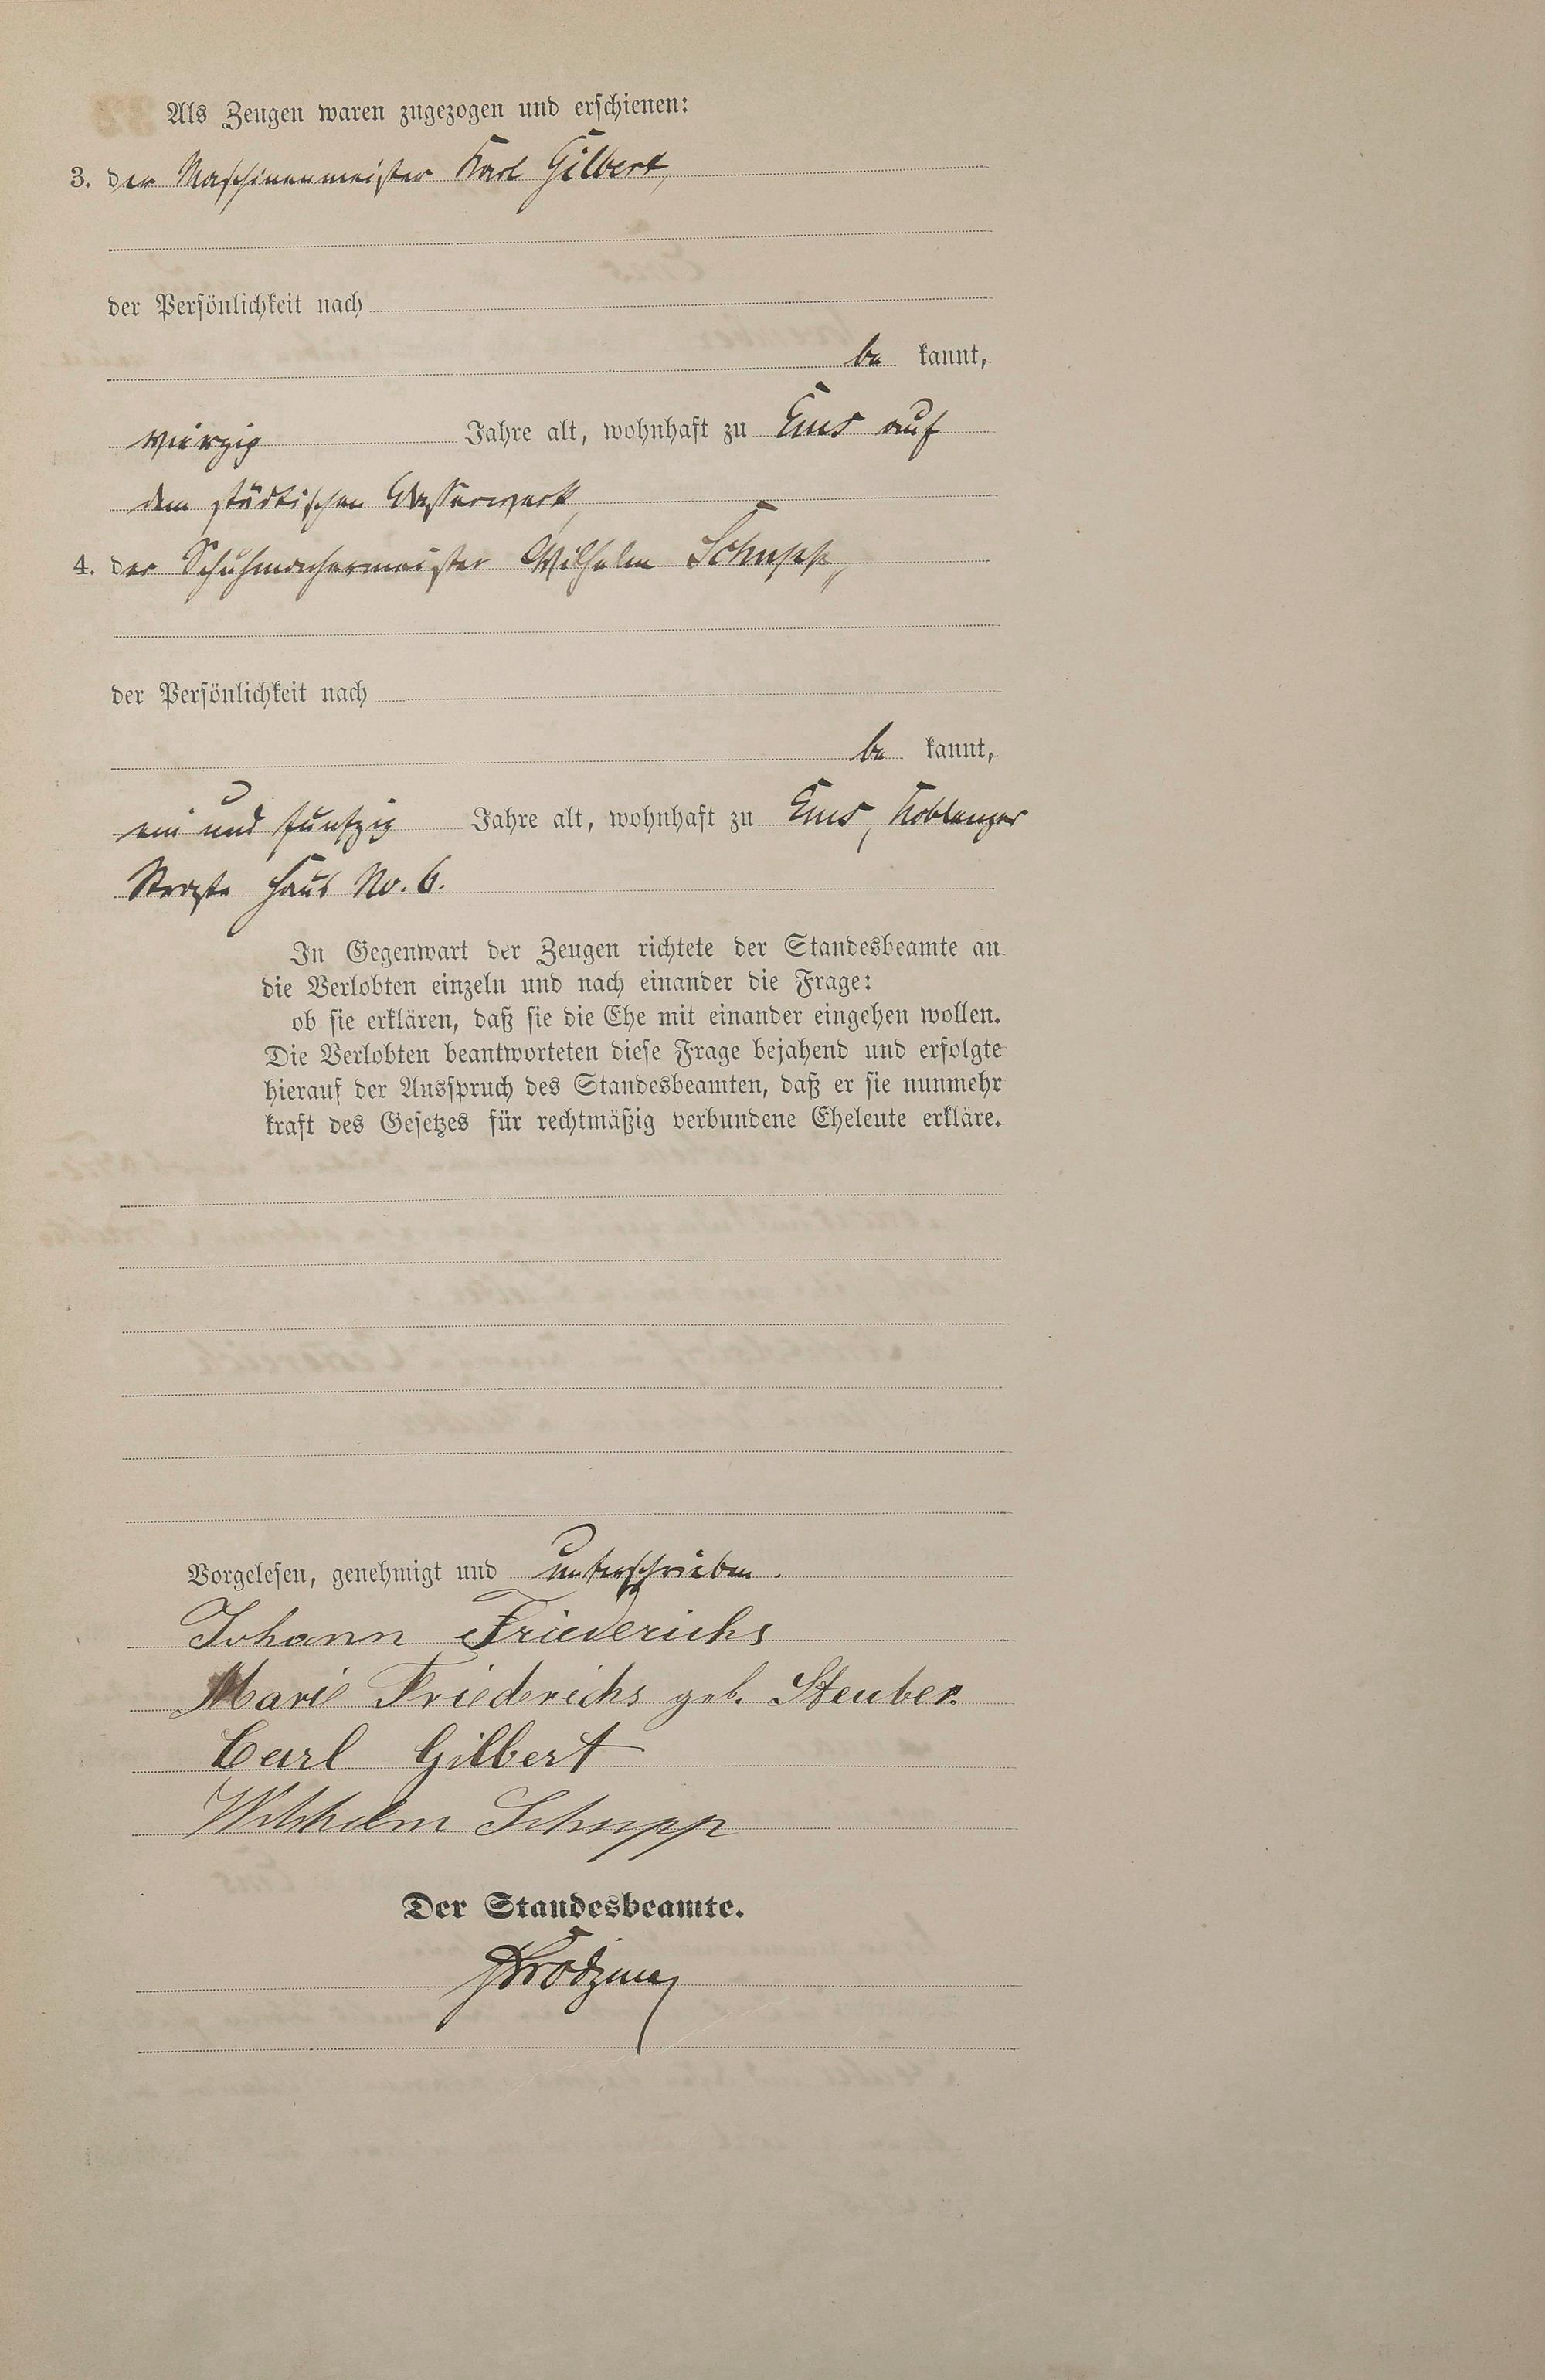 Als Zeugen waren zugezogen und erschienen:
3. der Maschinenmeister Karl Gilbert,
der Persönlichkeit nach
be kannt,
vierzig Jahre alt, wohnhaft zu Ems auf
dem städtischen Wasserwerk,
4. der Schuhmachermeister Wilhelm Schupp,
der Persönlichkeit nach
be kannt,
ein und fünfzig Jahre alt, wohnhaft zu Ems, Koblenzer
Straße Haus No. 6.
In Gegenwart der Zeugen richtete der Standesbeamte an
die Verlobten einzeln und nach einander die Frage:
ob sie erklären, daß sie die Ehe mit einander eingehen wollen.
Die Verlobten beantworteten diese Frage bejahend und erfolgte
hierauf der Ausspruch des Standesbeamten, daß er sie nunmehr
kraft des Gesetzes für rechtmäßig verbundene Eheleute erkläre.
Vorgelesen, genehmigt und unterschrieben.
Johann Friederichs
Marie Friederichs geb. Steuber.
Carl Gilbert
Wilhelm Schupp
Der Standesbeamte.